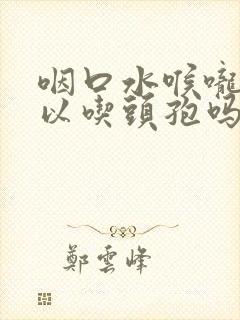 咽口水喉嚨
以喫頭孢吗
鄭雲峰